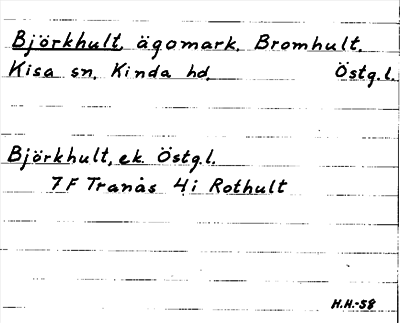 Björkhult, ägomark, Bromhult,
Kisa sn, Kinda hd, Östg.l.
Björkhult, ek. Östg.l.
7F Tranås 4i Rothult
H.H.-58